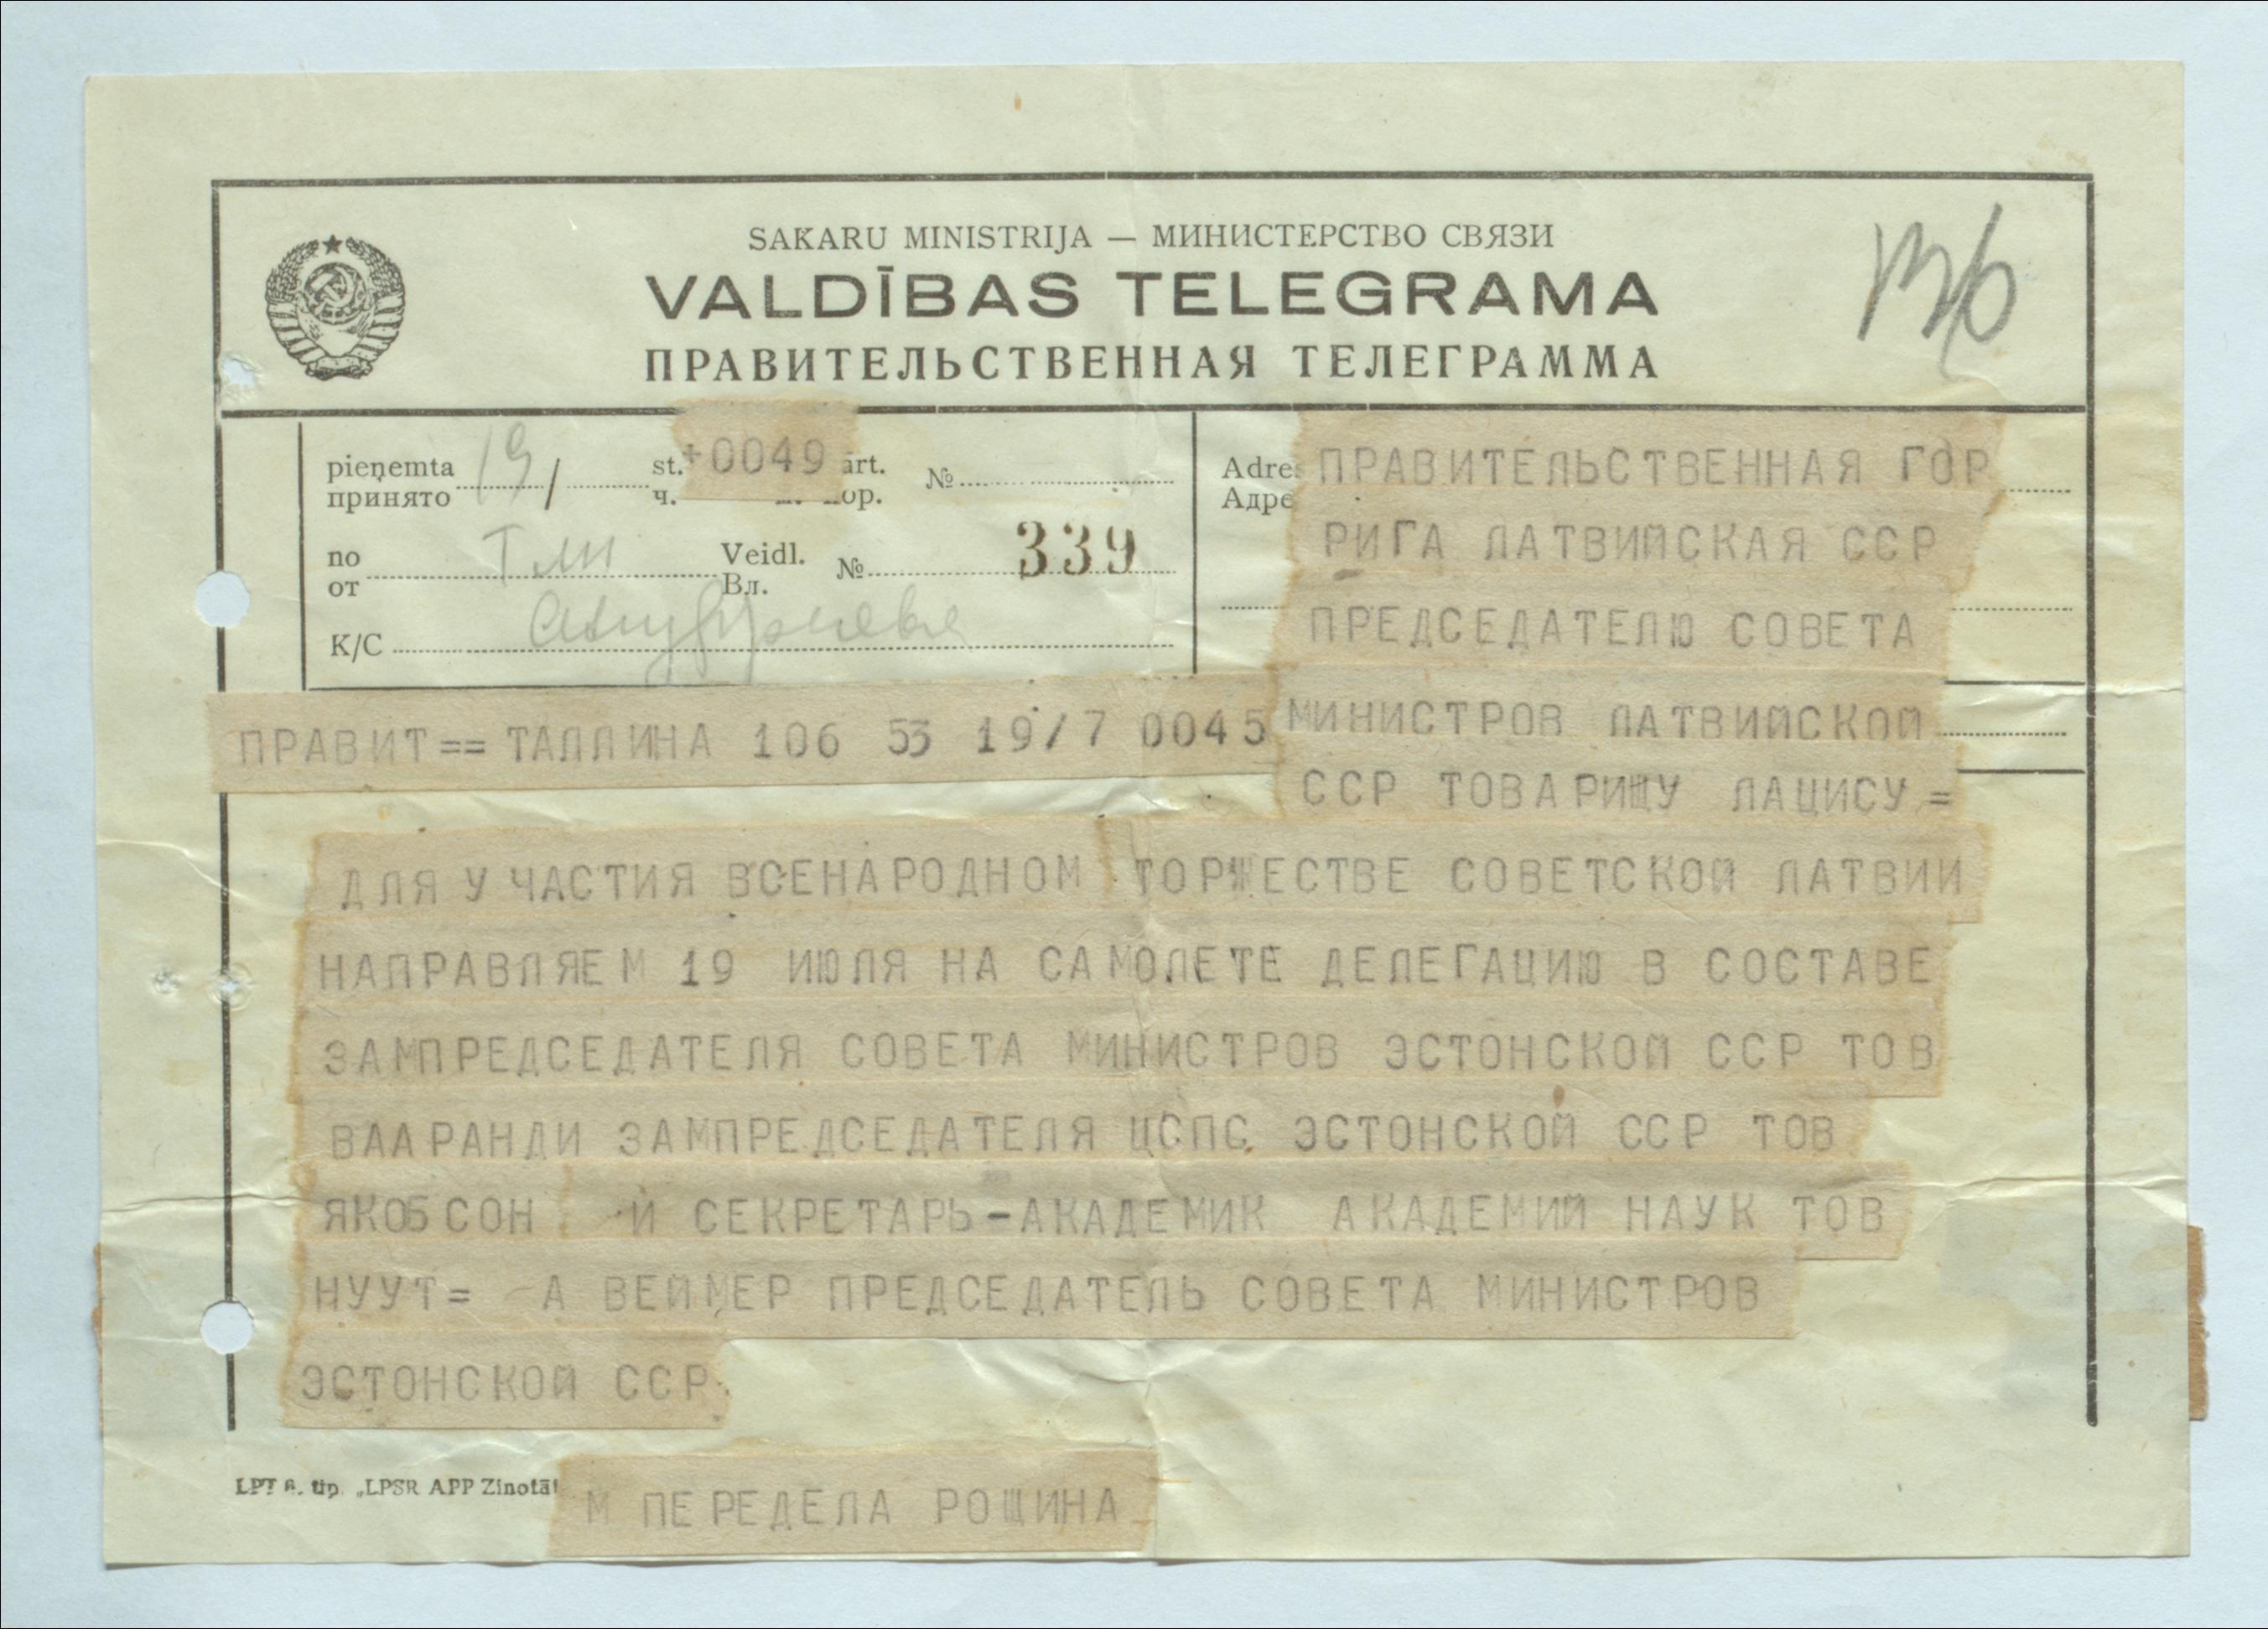 SAKARU MINISTRIJA — МИНИСТЕРСТВО СВЯЗИ
VALDĪBAS TELEGRAMA
ПРАВИТЕЛЬСТВЕННАЯ ТЕЛЕГРАММА
pieņemta 19/ st. +0049 ārt. №
принято ч. ор.
no Тлн Veidl. № 339
от Вл.
K/C
Adre
Адре
ПРАВИТЕЛЬСТВЕННАЯ ГОР
РИГА ЛАТВИЙСКАЯ ССР
ПРЕДСЕДАТЕЛЮ СОВЕТА
МИНИСТРОВ ЛАТВИЙСКОЙ
ССР ТОВАРИЩУ ЛАЦИСУ=
ПРАВИТ== ТАЛЛИНА 106 53 19/7 0045
ДЛЯ УЧАСТИЯ ВСЕНАРОДНОМ ТОРЖЕСТВЕ СОВЕТСКОЙ ЛАТВИИ
НАПРАВЛЯЕМ 19 ИЮЛЯ НА САМОЛЕТЕ ДЕЛЕГАЦИЮ В СОСТАВЕ
ЗАМПРЕДСЕДАТЕЛЯ СОВЕТА МИНИСТРОВ ЭСТОНСКОЙ ССР ТОВ
ВААРАНДИ ЗАМПРЕДСЕДАТЕЛЯ ЦСПС ЭСТОНСКОЙ ССР ТОВ
ЯКОБСОН И СЕКРЕТАРЬ-АКАДЕМИК АКАДЕМИЙ НАУК ТОВ
НУУТ= А ВЕЙМЕР ПРЕДСЕДАТЕЛЬ СОВЕТА МИНИСТРОВ
ЭСТОНСКОЙ ССР
LPT 6. tip. „LPSR APP Zinotā
М ПЕРЕДЕЛА РОЩИНА